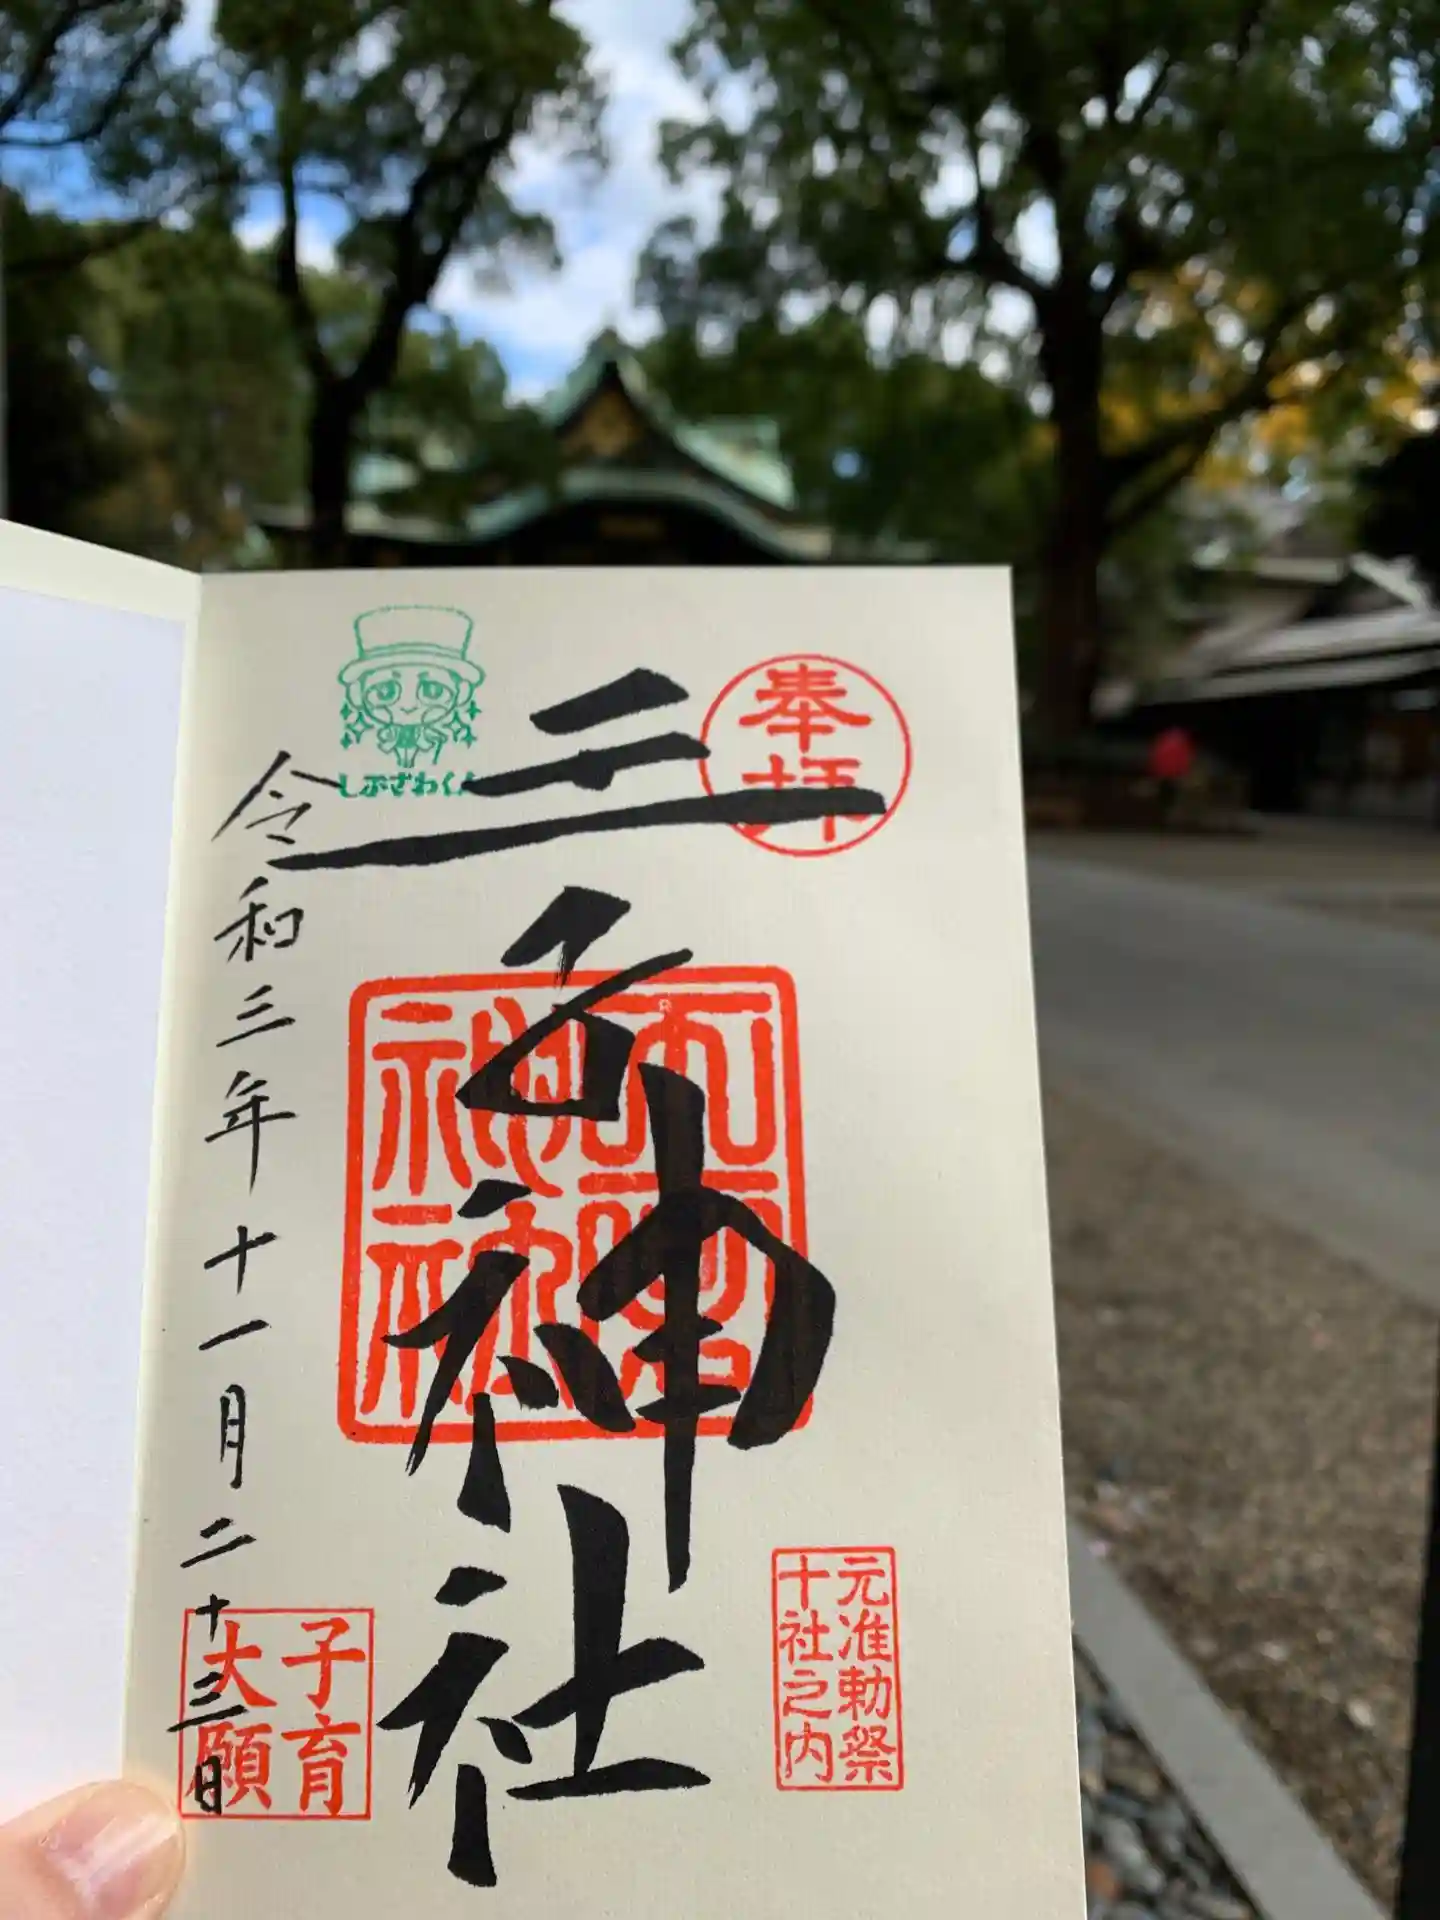 奉拝
王子神社
王子神社
元准勅祭
十社之内
しぶさわくん
令和三年十一月二十三日
子育
大願